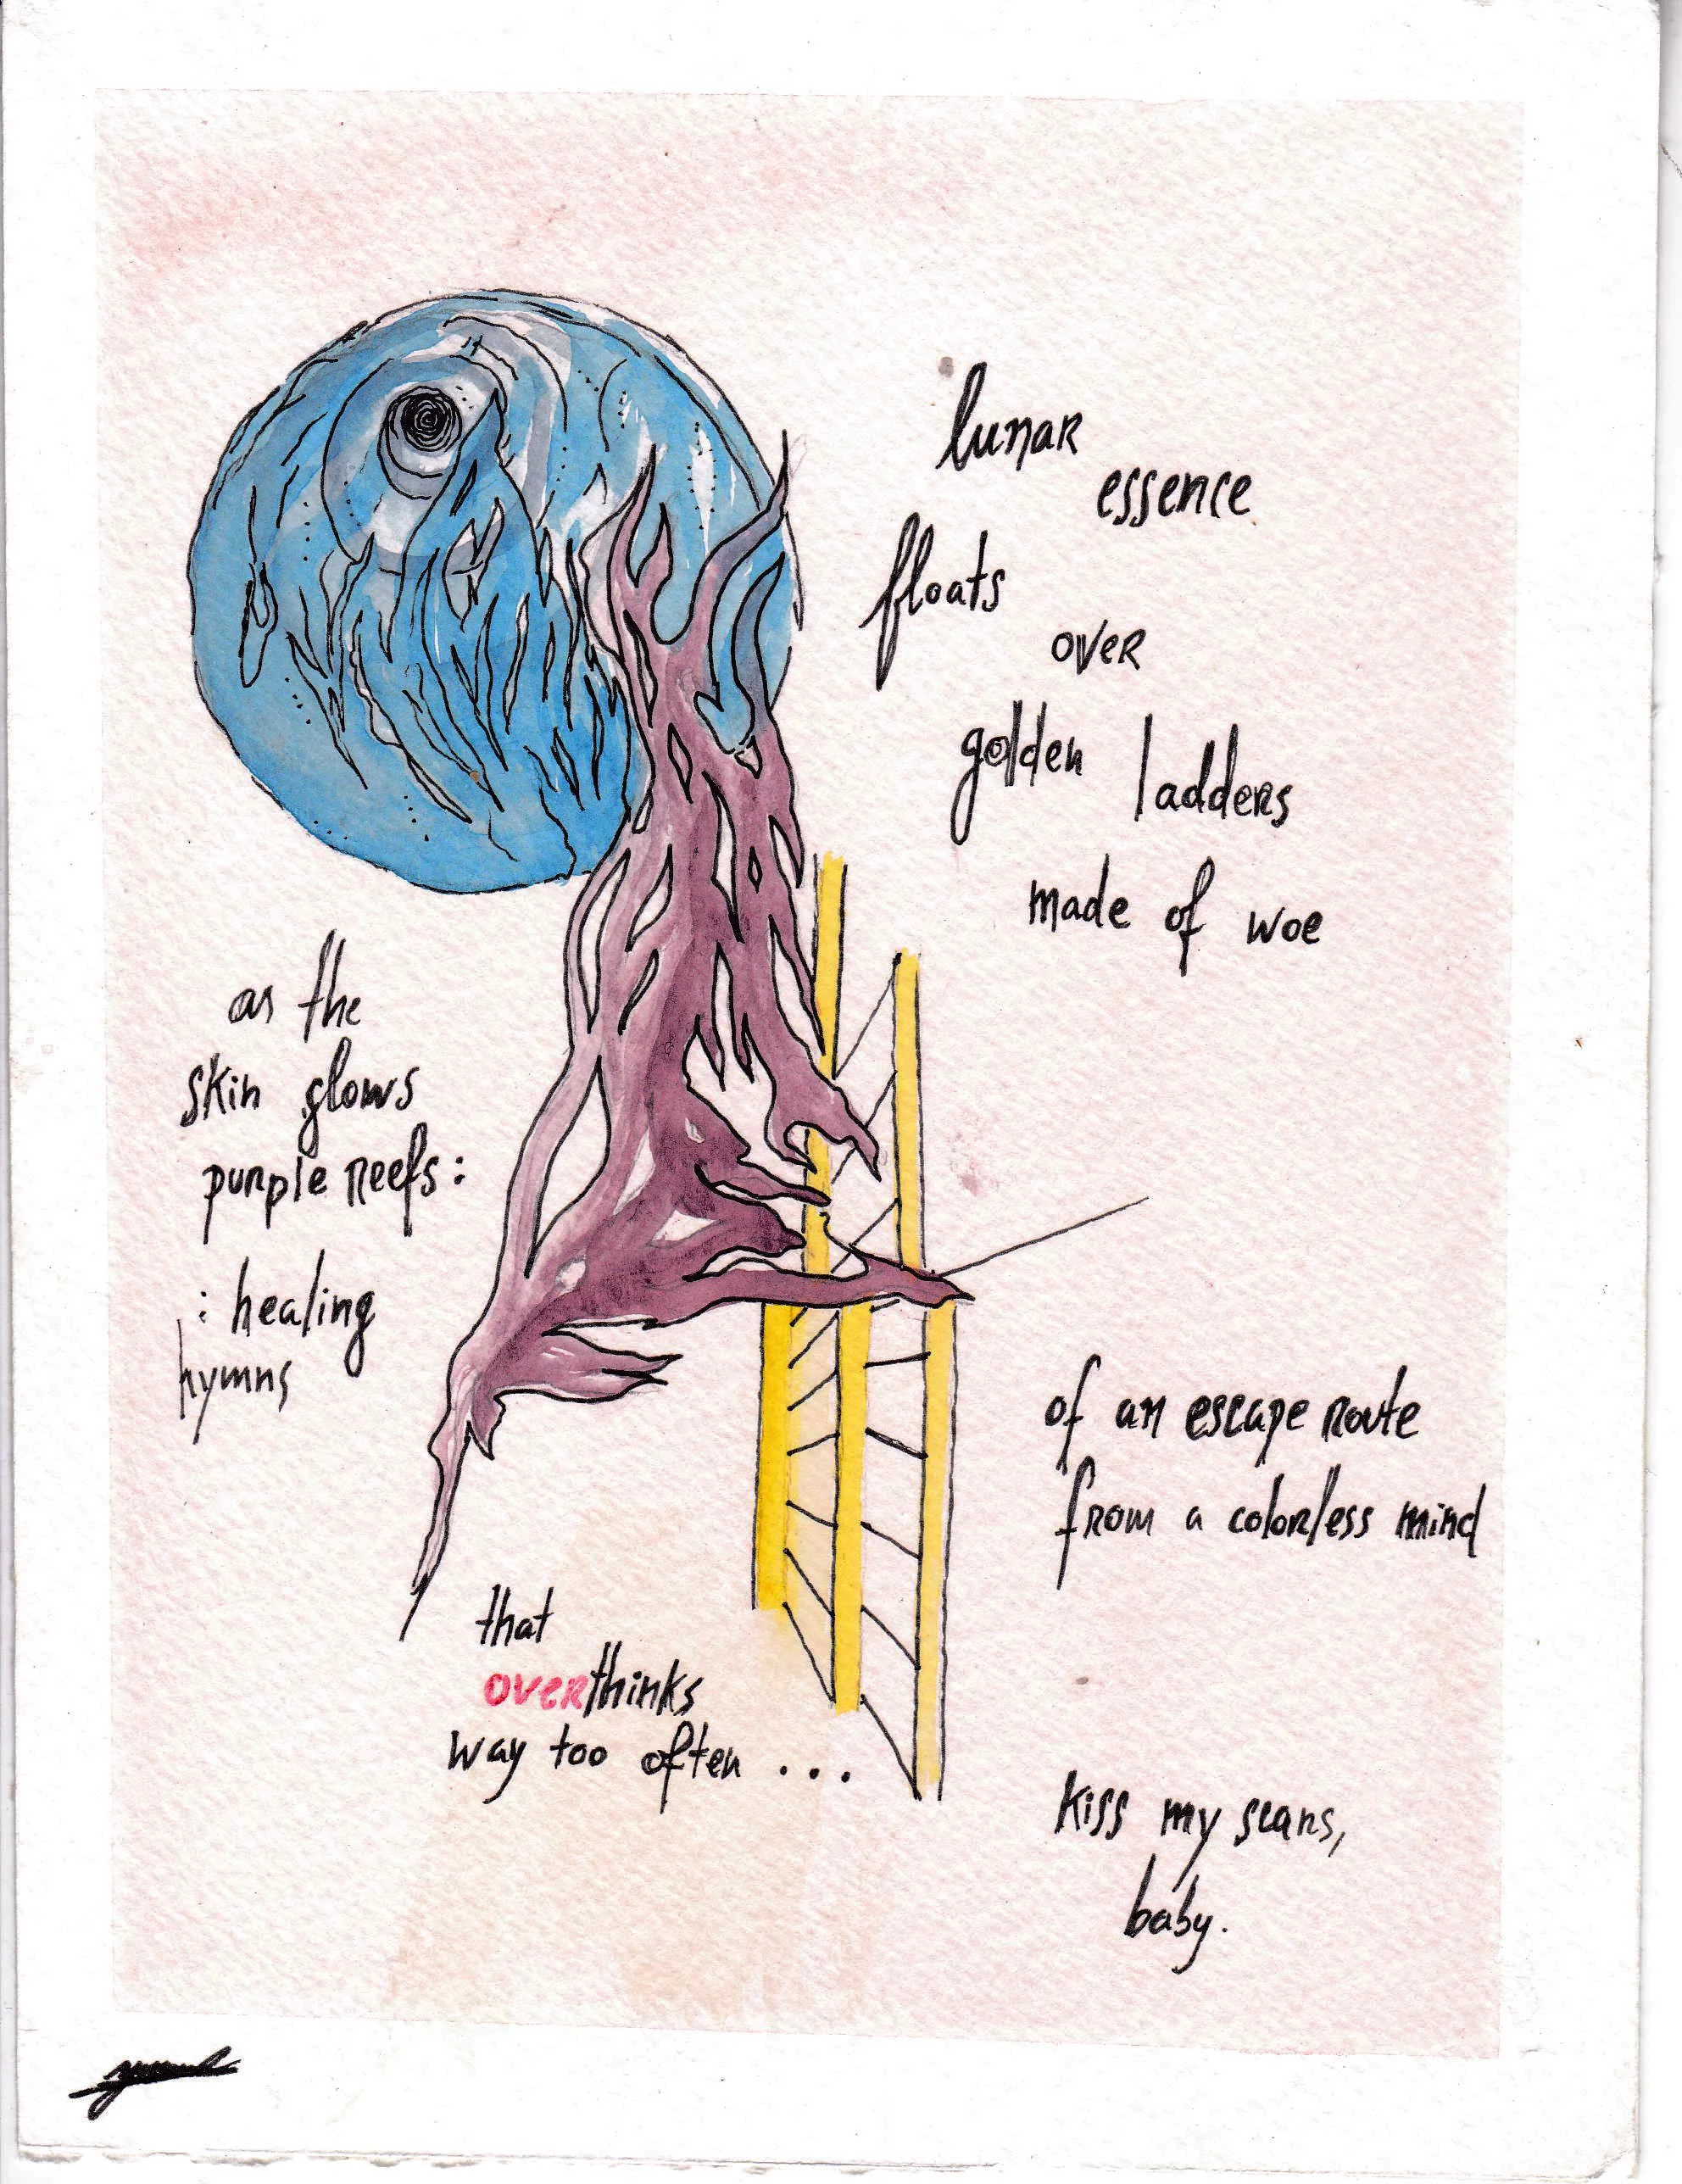 lunar
essence
floats
over
golden ladders
made of woe
as the
skin glows
purple reefs:
: healing
hymns
of an escape route
from a colorless mind
that
overthinks
way too often ...
kiss my scars,
baby.